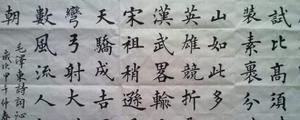 試比高須
裝素裹分
山如此多
英雄競折
漢武略輸
宋祖稍遜
天驕成吉
彎弓射大
數風流人
朝
毛澤東詩詞沁
歲次甲午仲春